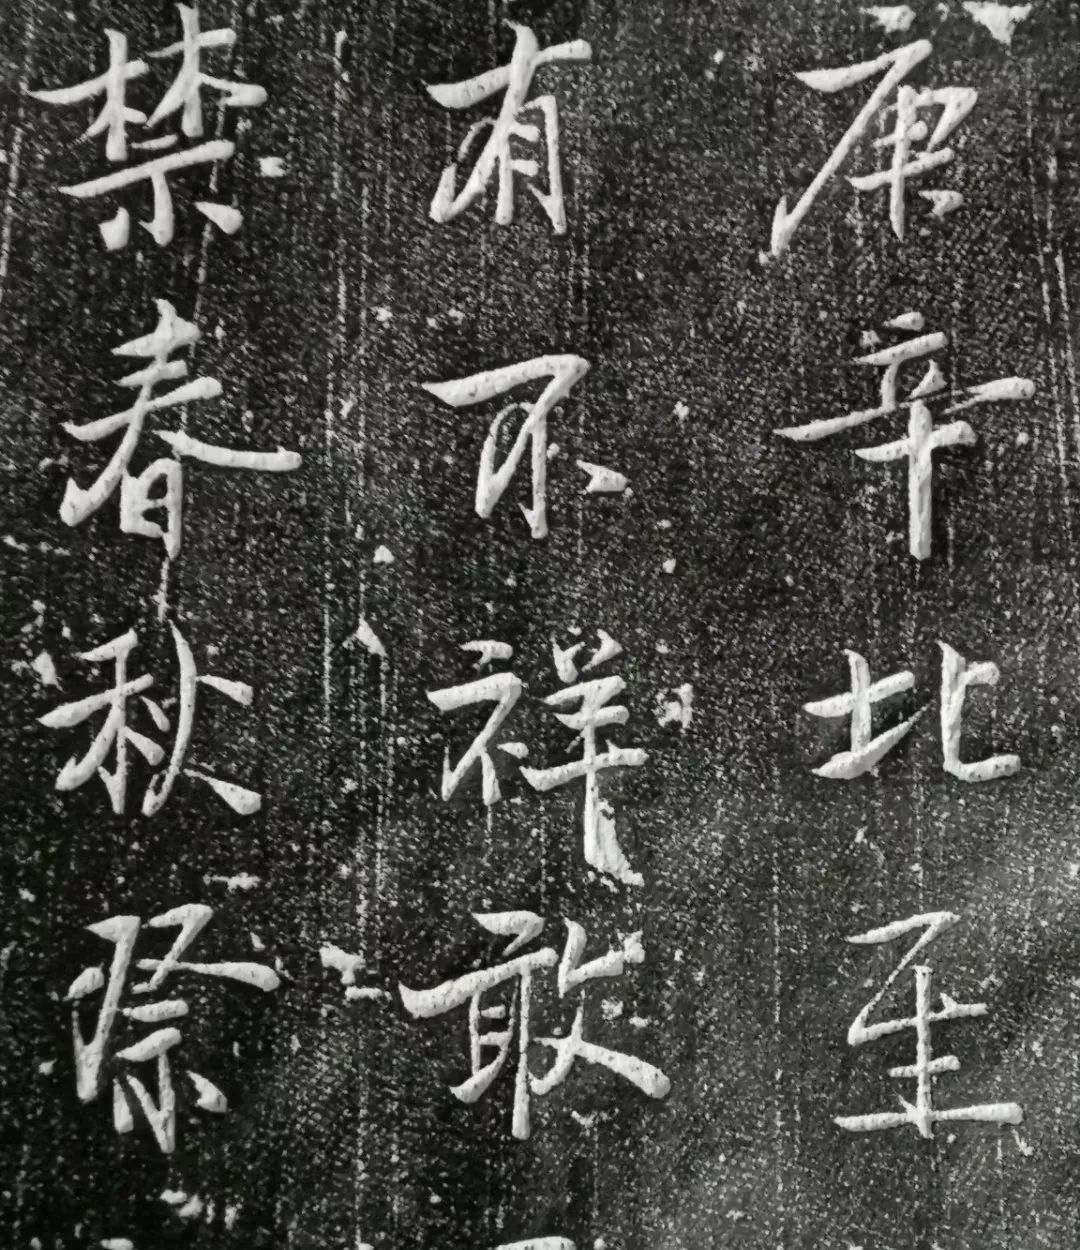 庚辛北至
有不祥敢
禁春秋祭